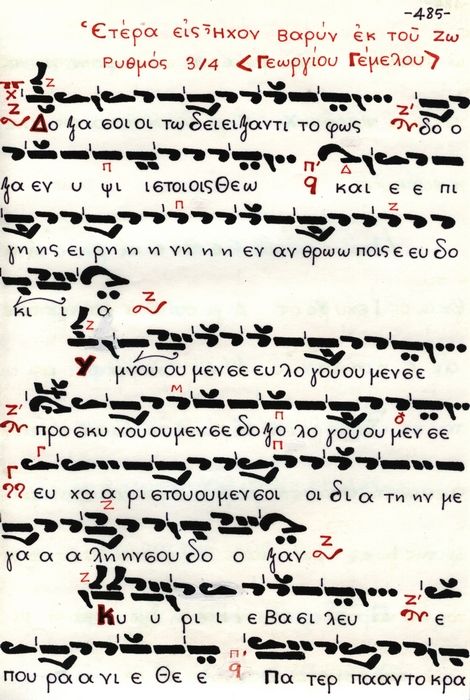 -485-
Ἑτέρα εἰς Ἦχον βαρύν ἐκ τοῦ Ζω
Ρυθμός 3/4 < Γεωργίου Γέμελου >
Δο ξα σοι οι τω δει ει ξαντι το φως Ζ' δο ο
ξα εν υ ψι ι στοι οις Θεω Π' και ε ε πι
γη ης ει ρη η η νη η η εν αν θρω ω ποις ε ευ δο
κι ι α Ζ
Υ μνου ου μεν σε ευ λο γου ου μεν σε
Ζ' προσ κυ νου ου μεν σε δο ξο λο γου ου μεν σε
Γ ευ χα α ρι στου ου μεν σοι οι δι α τη ην με
γα α α λη ην σου δο ο ξαν Ζ
Κυ υ υ ρι ι ε Βα σι λευ Ζ' ε
που ρα α νι ε Θε ε Π' Πα τερ πα αν το κρα